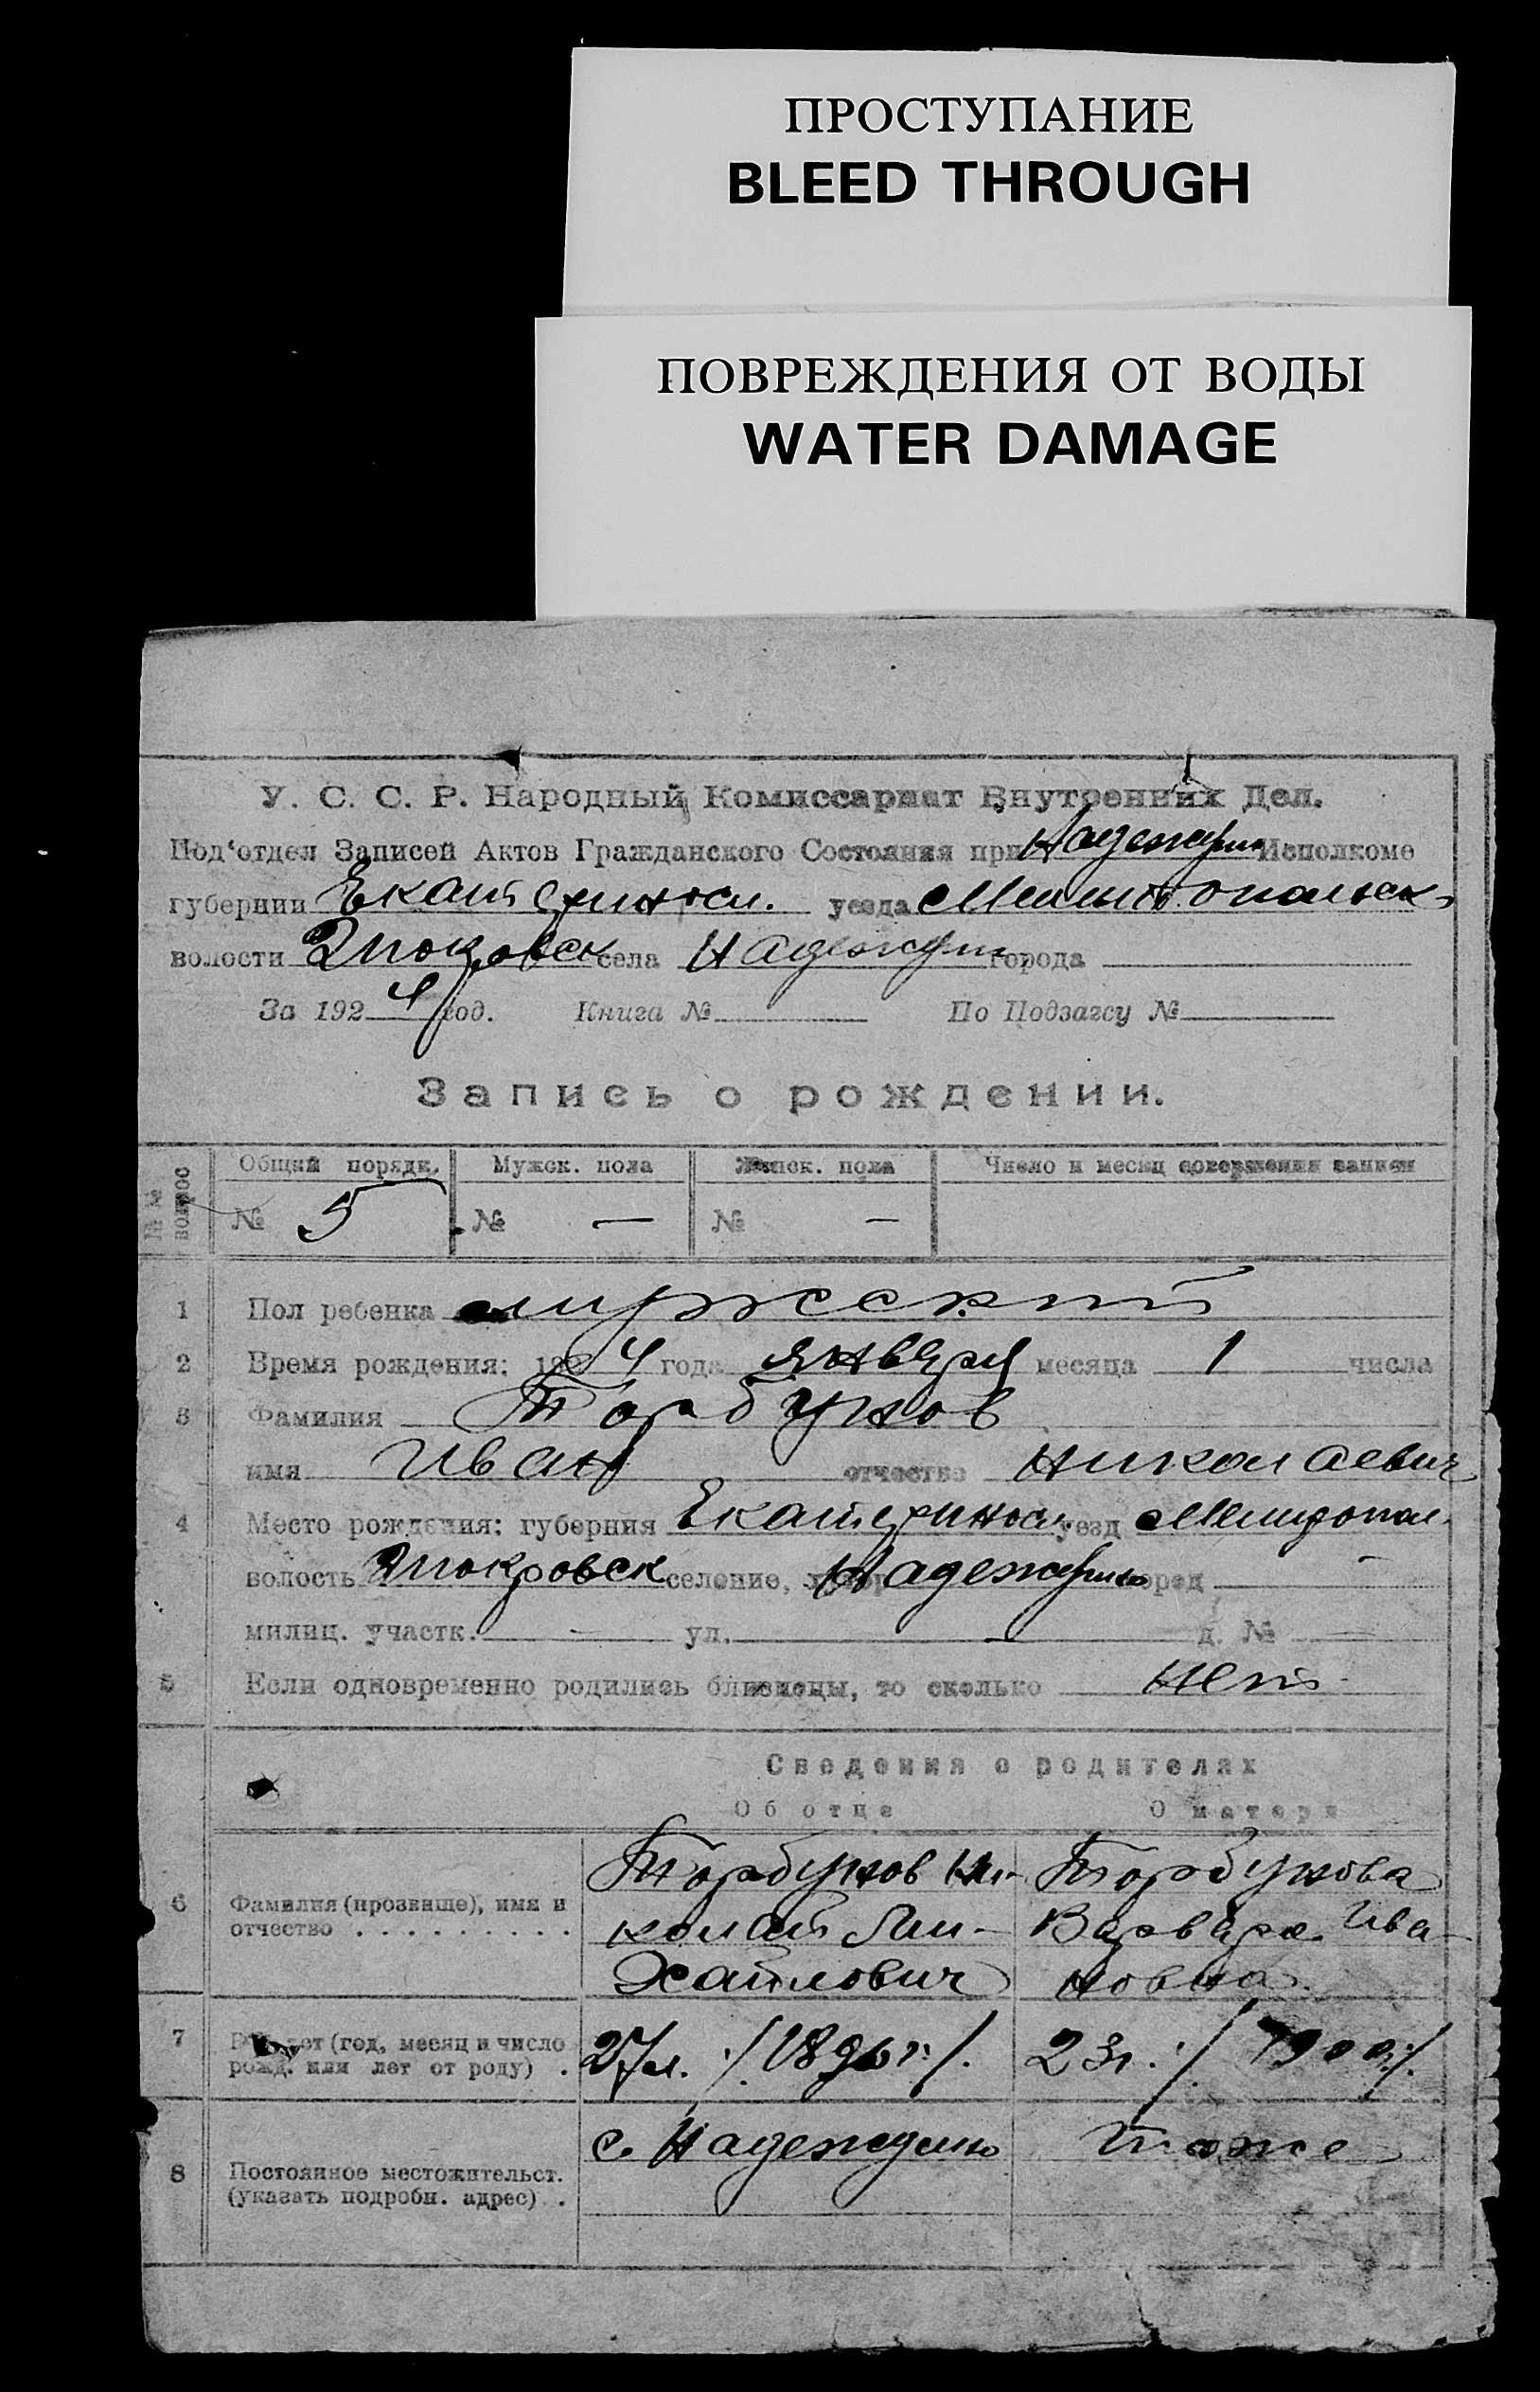 ПРОСТУПАНИЕ
BLEED THROUGH
ПОВРЕЖДЕНИЯ ОТ ВОДЫ
WATER DAMAGE
У. С. С. Р. Народный Комиссариат Внутренних Дел.
Под'отдел Записей Актов Гражданского Состояния при Исполкоме
губернии Екатериносл. уезда Мелитопольск.
волости села города
За 1924 год. Книга № По Подзагсу №
Запись о рождении.
№ № вопрос Общий порядк. Мужск. пола Женск. пола Число и месяц совершения записи
№ 5 № — № —
1 Пол ребенка мужской
2 Время рождения: 1924 года января месяца 1 числа
3 Фамилия Торбунов
имя Иван отчество Николаевич
4 Место рождения: губерния Екатериносл. уезд Мелитопол.
волость селение, город —
милиц. участк. — ул. — д. № —
5 Если одновременно родились близнецы, то сколько нет
Сведения о родителях
Об отце О матери
6 Фамилия (прозвище), имя и Торбунов Ни- Торбунова
отчество . . . . . . . . . колай Ми- Варвара Ива-
хайлович новна.
7 лет (год, месяц и число 27 л. /1896 г./. 23 г. /1900 г./.
рожд. или лет от роду) .
с. Надеждино тоже
8 Постоянное местожительст.
(указать подробн. адрес) .